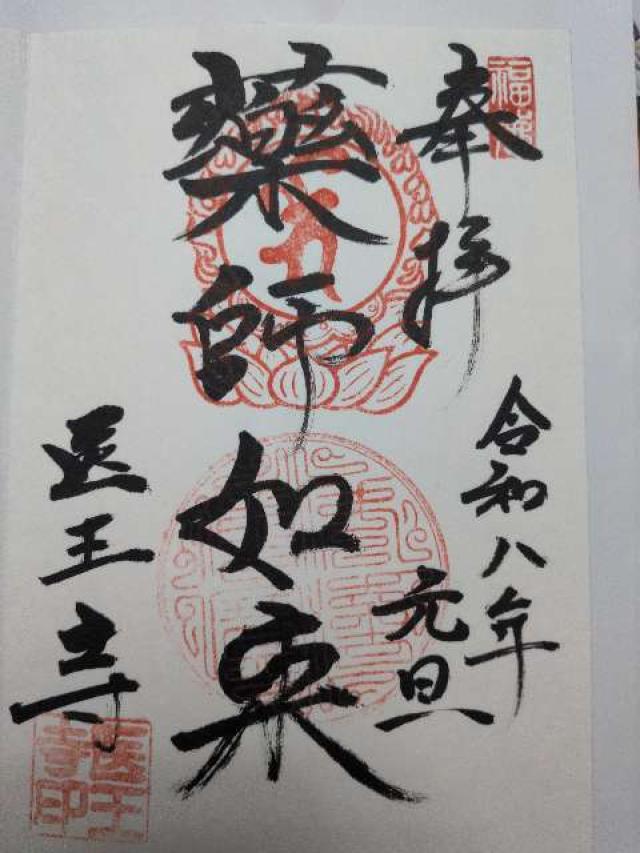 奉拝
令和八年
元旦
藥師如来
医王寺
医王寺印